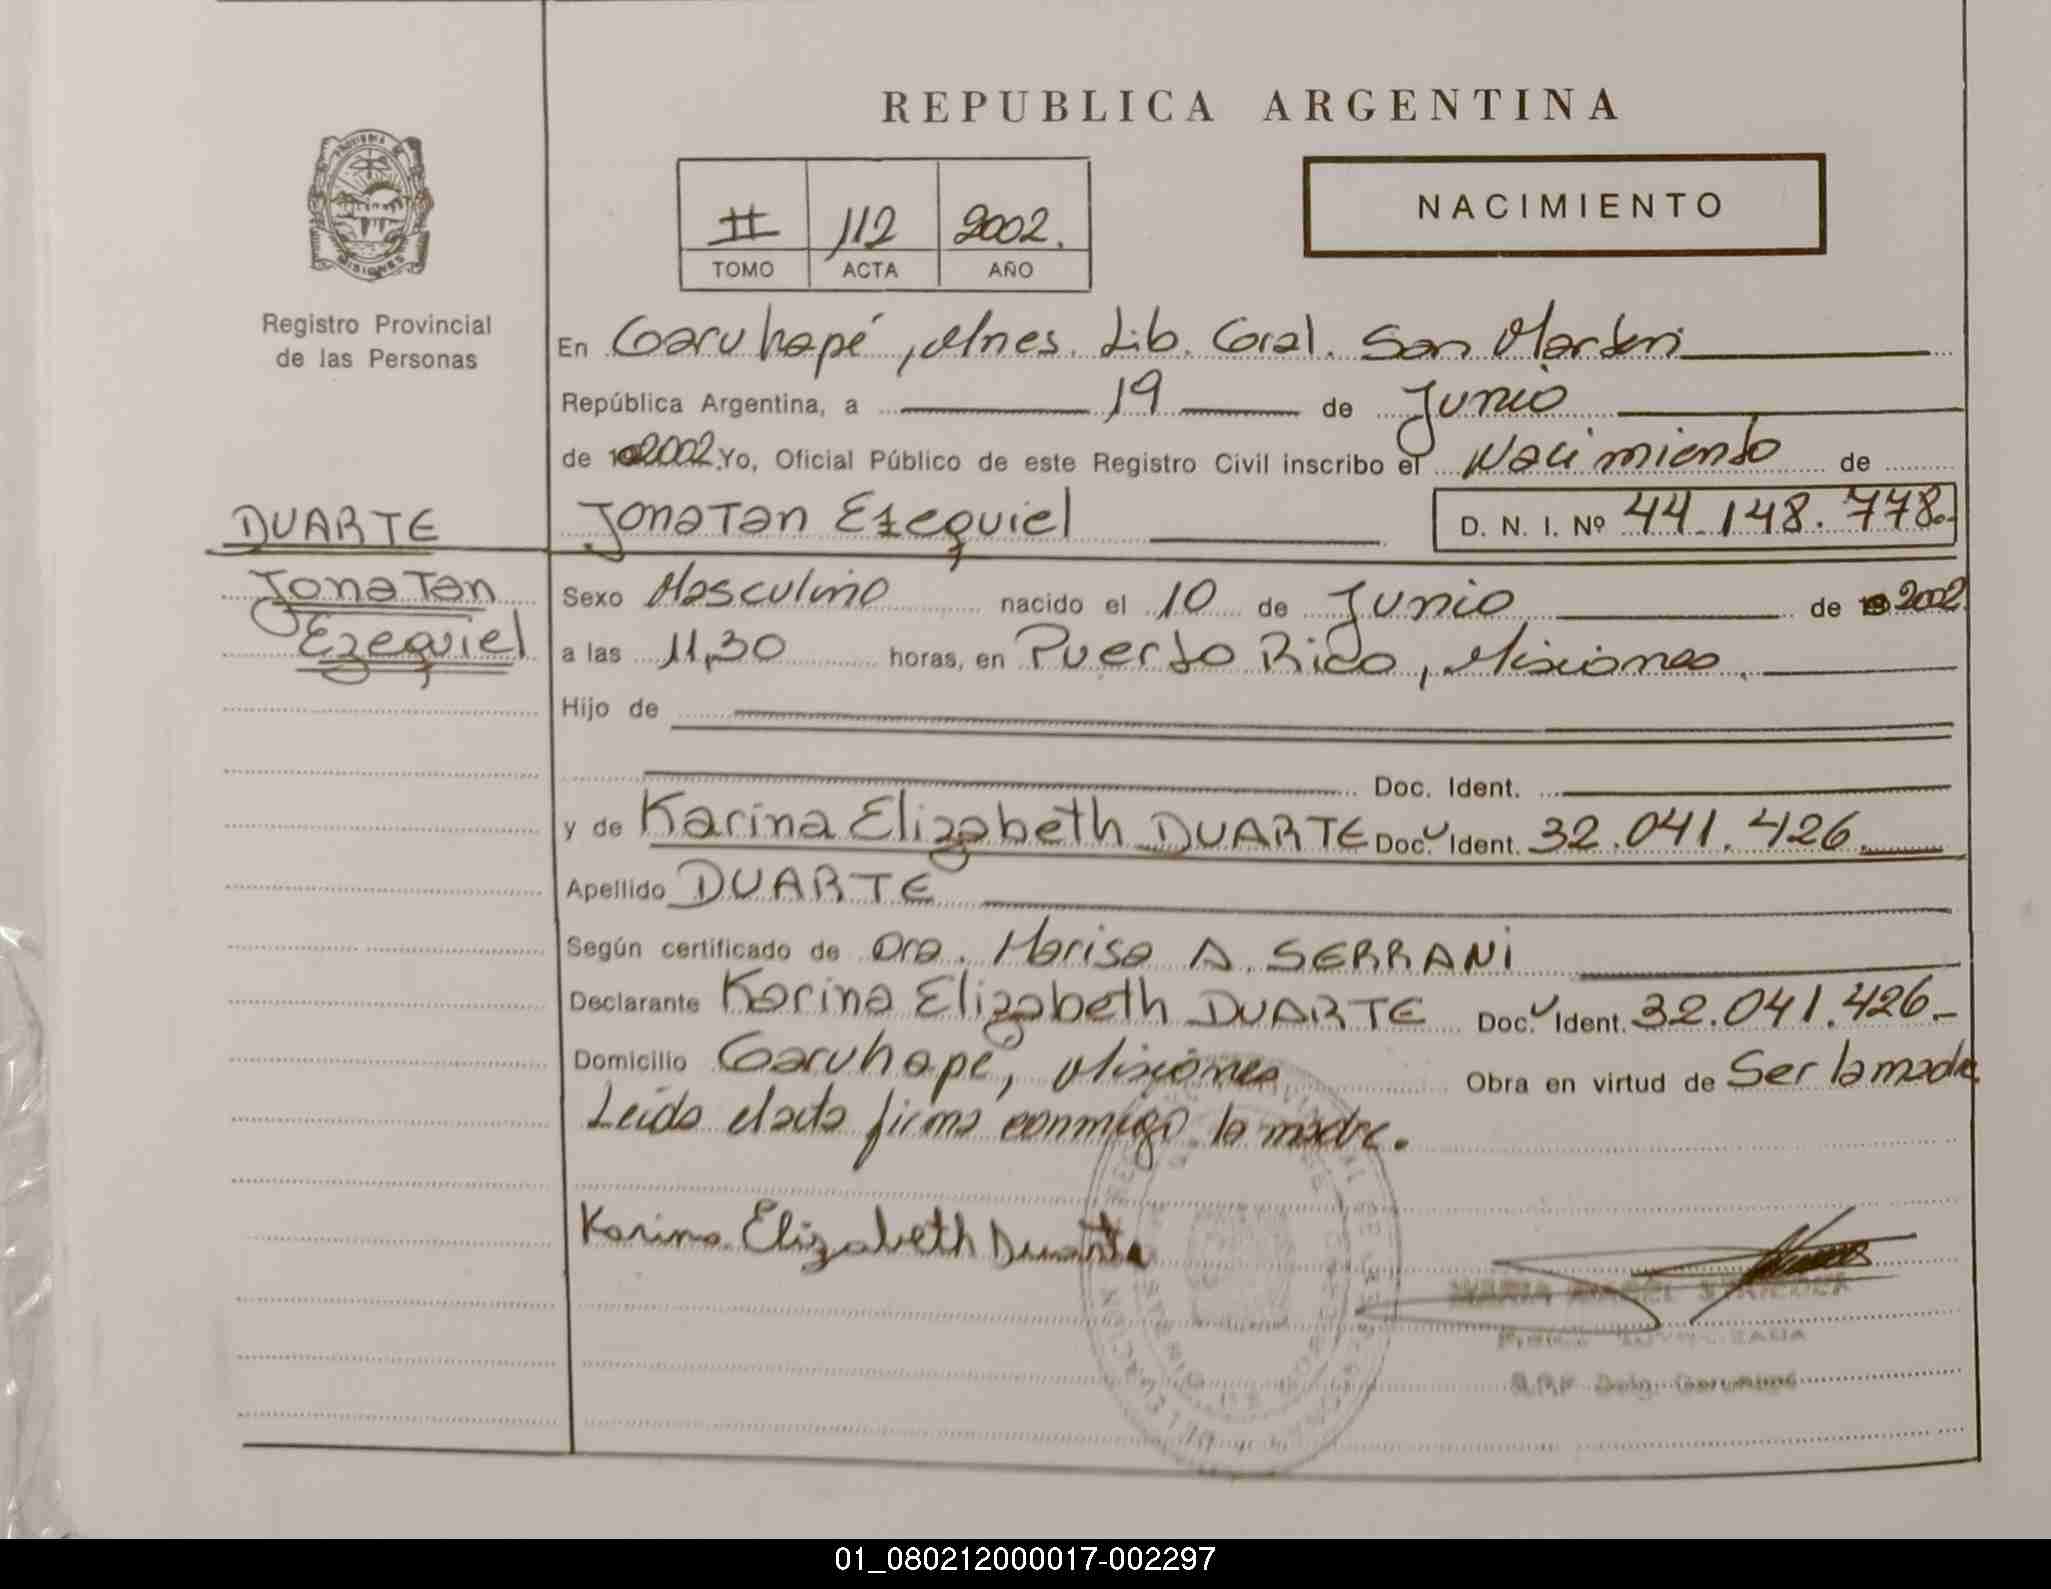 REPUBLICA ARGENTINA
NACIMIENTO
II 112 2002.
TOMO ACTA AÑO
PROVINCIA DE MISIONES
Registro Provincial
de las Personas
En Garuhapé, Mnes. Lib. Gral. San Martin
República Argentina, a 19 de Junio
de 2002. Yo, Oficial Público de este Registro Civil inscribo el Nacimiento de
DUARTE Jonatan Ezequiel D. N. I. Nº 44.148.778.-
Jonatan
Ezequiel
Sexo Masculino nacido el 10 de Junio de 2002
a las 11,30 horas, en Puerto Rico, Misiones.
Hijo de
Doc. Ident.
y de Karina Elizabeth DUARTE Doc. Ident. 32.041.426.
Apellido DUARTE
Según certificado de Dra. Marisa A. SERRANI
Declarante Karina Elizabeth DUARTE Doc. Ident. 32.041.426.-
Domicilio Garuhapé, Misiones Obra en virtud de Ser la madre
Leida el acta firma conmigo la madre.
Karina Elizabeth Duarte
01_080212000017-002297